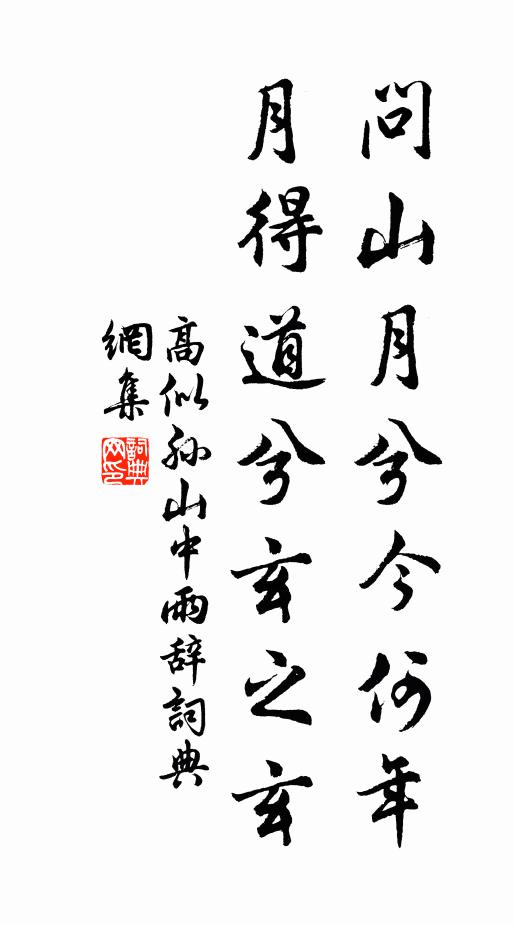 問山月兮今何年
月得道兮玄之玄
高似孫山中雨辞詞典
網集
詞典
网印